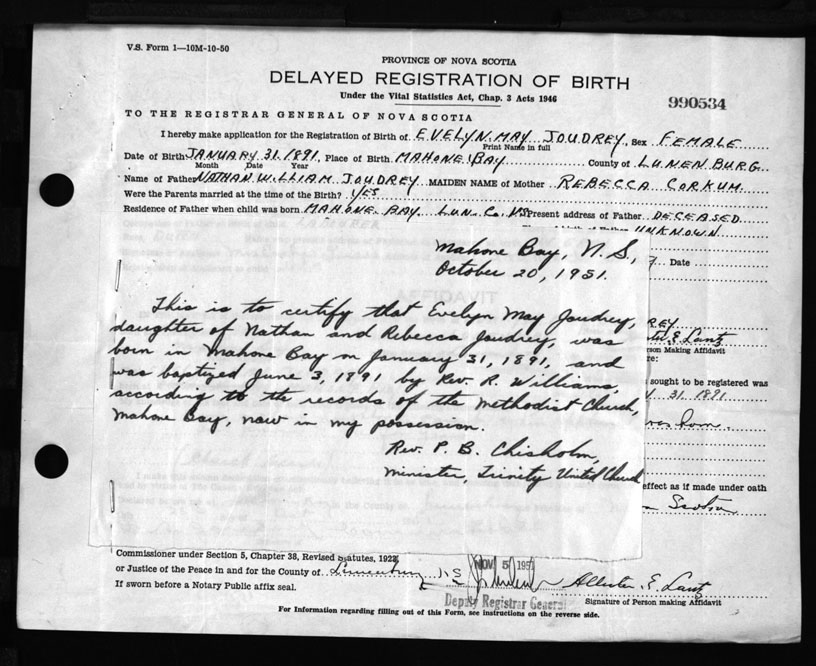 V.S. Form 1—10M-10-50
PROVINCE OF NOVA SCOTIA
DELAYED REGISTRATION OF BIRTH
Under the Vital Statistics Act, Chap. 3 Acts 1946
990534
TO THE REGISTRAR GENERAL OF NOVA SCOTIA
I hereby make application for the Registration of Birth of EVELYN MAY JOUDREY, Sex FEMALE
Print Name in full
Date of Birth JANUARY 31. 1891, Place of Birth MAHONE BAY County of LUNENBURG.
Month Date Year
Name of Father NATHAN WILLIAM JOUDREY MAIDEN NAME of Mother REBECCA CORKUM.
Were the Parents married at the time of the Birth? YES
Residence of Father when child was born MAHONE BAY LUN. Co. N.S. Present address of Father DECEASED
UNKNOWN
Mahone Bay, N.S.,
October 20, 1951.
Date
This is to certify that Evelyn May Joudrey,
daughter of Nathan and Rebecca Joudrey, was
born in Mahone Bay on January 31, 1891, and
was baptized June 3, 1891 by Rev. R. Williams,
according to the records of the Methodist Church,
Mahone Bay, now in my possession.
Rev. P. B. Chisholm,
Minister, Trinity United Church
REY
E. Lantz
rson Making Affidavit
re:
sought to be registered was
31. 1891
effect as if made under oath
Scotia
Commissioner under Section 5, Chapter 38, Revised Statutes, 1923
or Justice of the Peace in and for the County of Lunenburg N.S.
NOV 5 1951
Allister E. Lantz
If sworn before a Notary Public affix seal.
Deputy Registrar General
Signature of Person making Affidavit
For Information regarding filling out of this Form, see instructions on the reverse side.